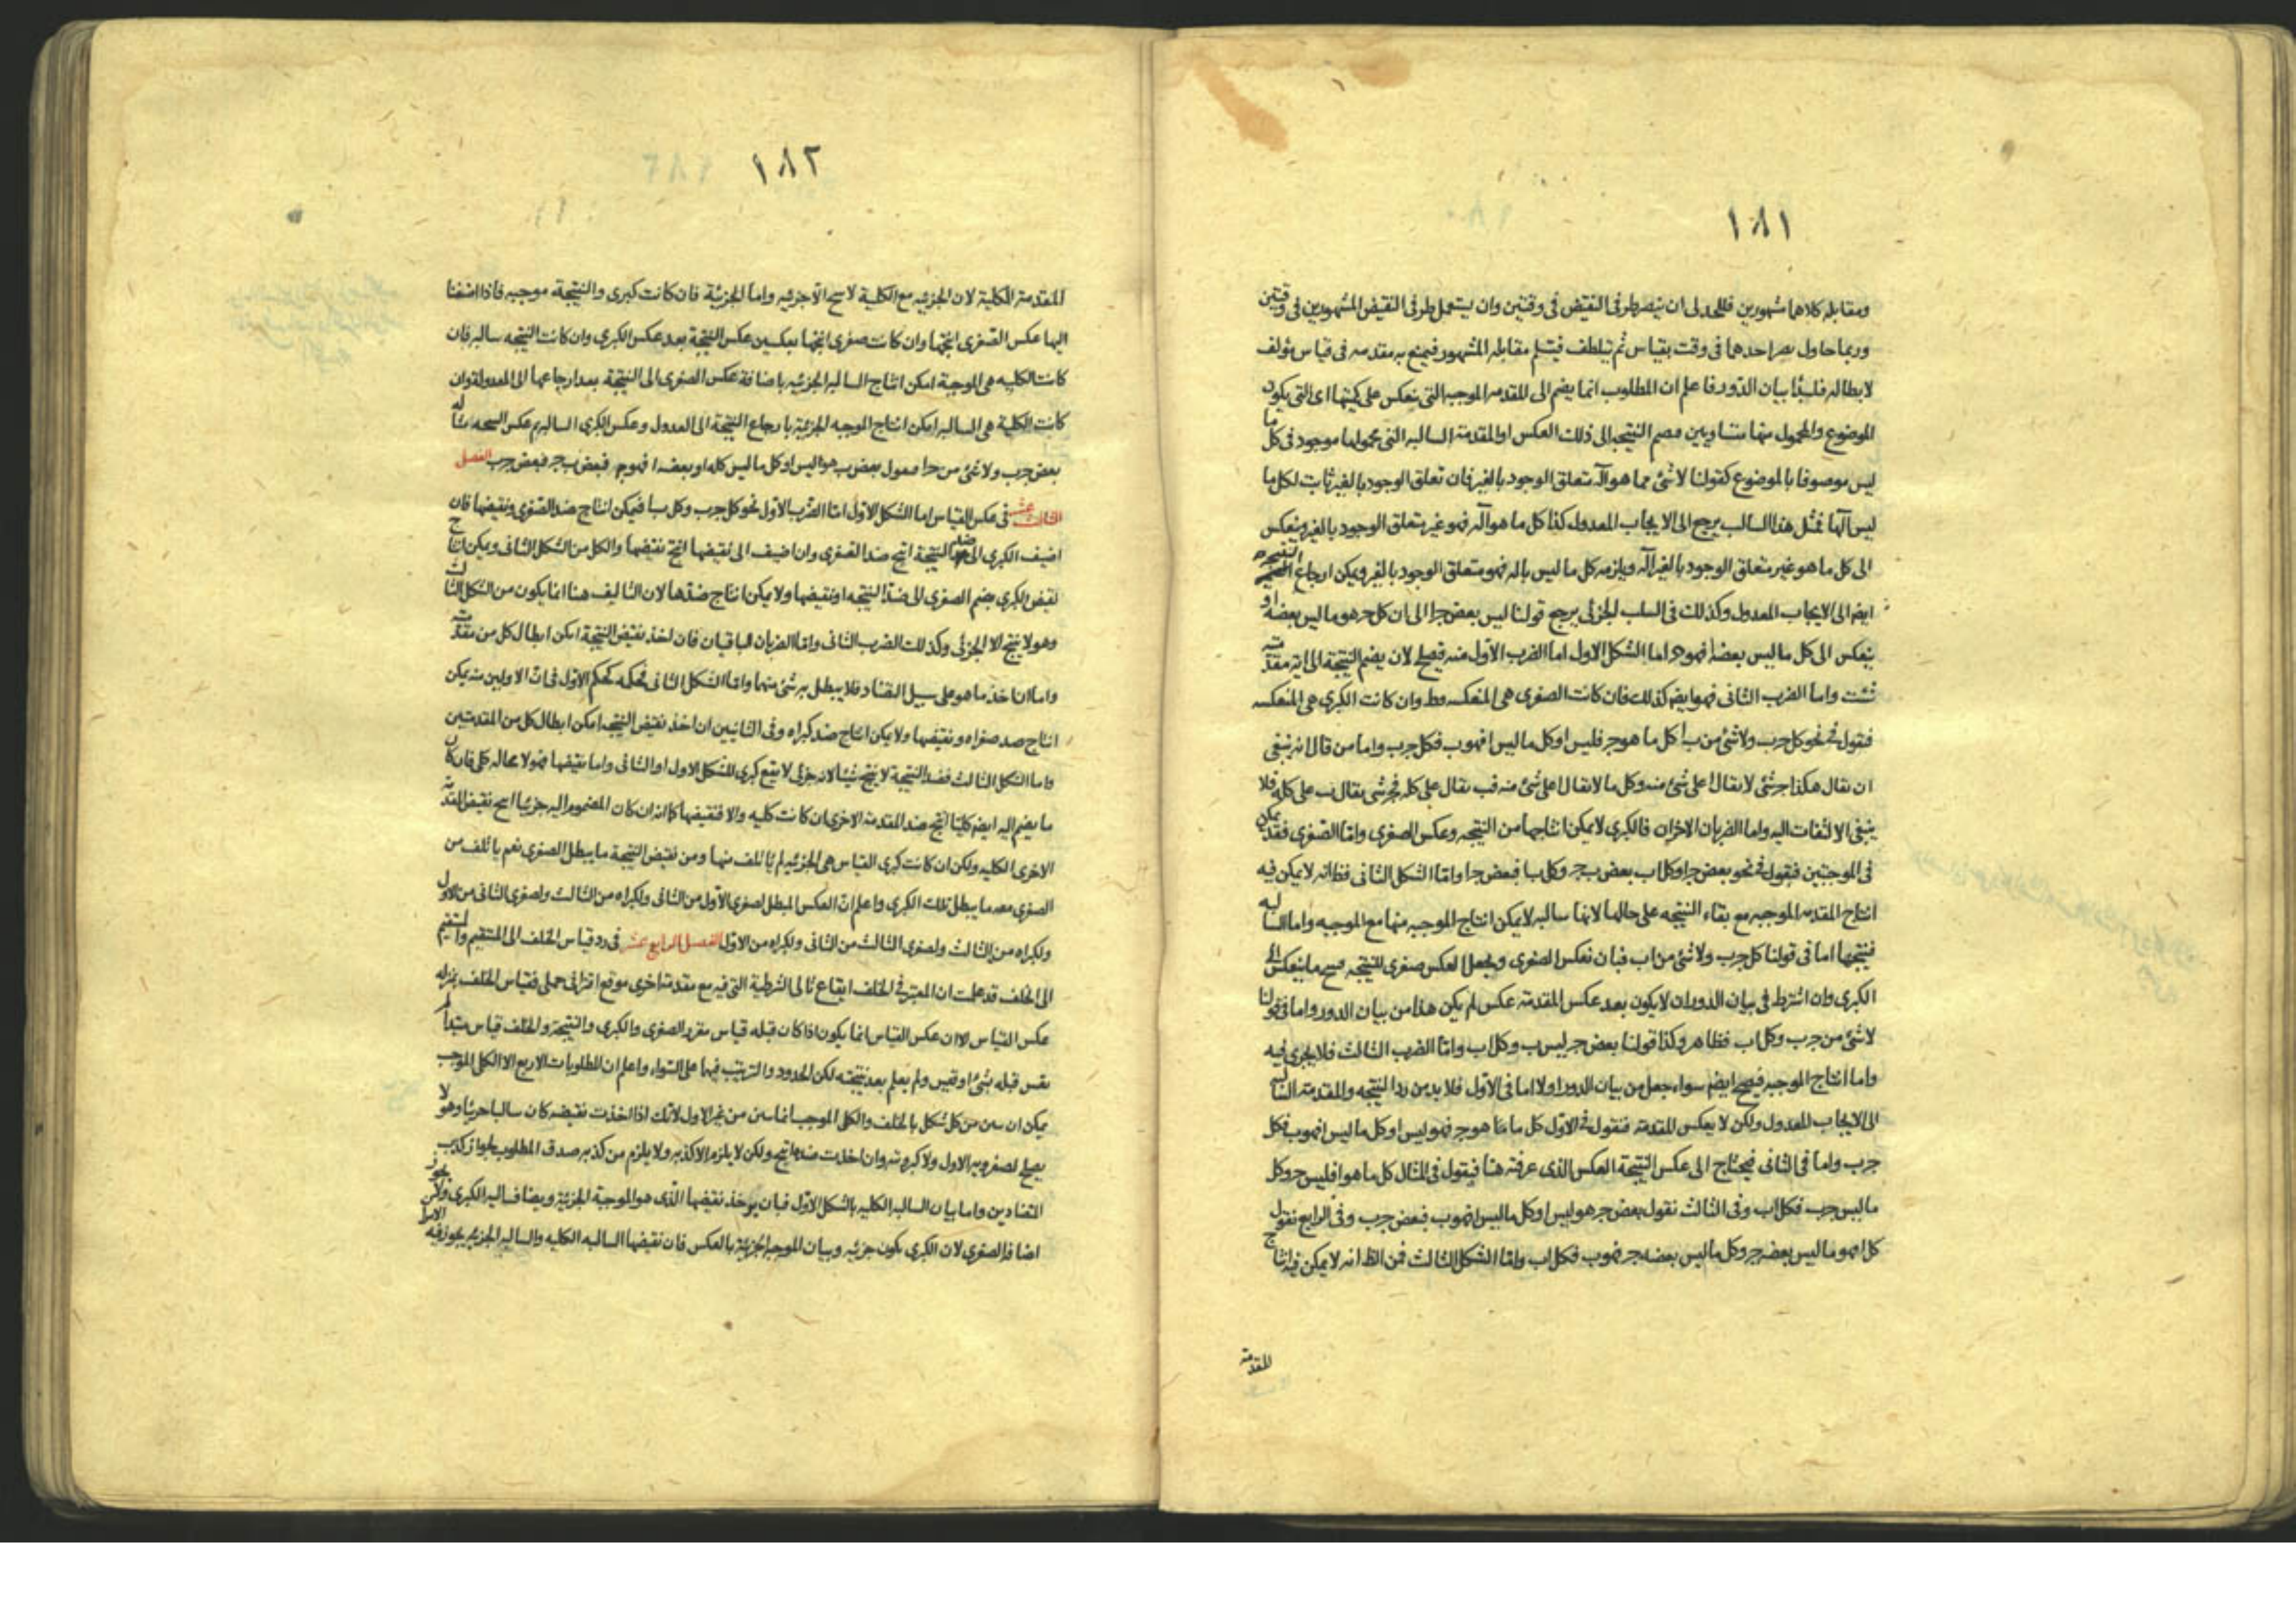 ١٨١
ومقابله كلاهما مشهورين فللجدلى ان ينصر طرفى النقيض فى وقتين وان يستعمل طرفى النقيض المشهورين فى وقتين
وربما حاول نصر احدهما فى وقت بقياس ثم تلطف فيتسلم مقابله المشهور فينتج به مقدمه فى قياس مؤلف
لابطاله فلنبدأ بيان الدور فاعلم ان المطلوب انما يضم الى المقدمه الموجبه التى ينعكس على كميتها اى التى يكون
الموضوع والمحمول منها متساويين فيضم النتيجه الى ذلك العكس او المقدمة السالبه التى محمولها موجود فى كل ما
ليس موصوفا بالموضوع كقولنا لا شئ مما هو اله متعلق الوجود بالغير فان تعلق الوجود بالغير ثابت لكل ما
ليس الها فمثل هذا السالب يرجع الى الايجاب المعدول كذا كل ما هو اله فهو غير متعلق الوجود بالغير وينعكس
الى كل ما هو غير متعلق الوجود بالغير اله ويلزمه كل ما ليس باله فهو متعلق الوجود بالغير ويمكن ارجاع النتيجه
ايضا الى الايجاب المعدول وكذلك فى السلب الجزئى يرجع قولنا ليس بعض جـ ا الى ان كل جـ هو ما ليس بعضه ا و
ينعكس الى كل ما ليس بعضه ا فهو جـ اما الشكل الاول اما الضرب الاول منه فيصلح لان يضم النتيجة الى اية مقدمة
شئت واما الضرب الثانى فهو ايضا كذلك فان كانت الصغرى هى المنعكسه فظ وان كانت الكبرى هى المنعكسه
فنقول فى نحو كل جـ ب ولا شئ من ب ا كل ما هو جـ فليس ا وكل ما ليس ا فهو ب فكل جـ ب واما من قال انه ينبغى
ان يقال هكذا جـ شئ لا يقال ا على شئ منه وكل ما لا يقال ا على شئ منه فب يقال على كله فجـ شئ يقال ب على كله فلا
ينبغى الالتفات اليه واما الضربان الاخران فالكبرى لا يمكن انتاجها من النتيجه وعكس الصغرى واما الصغرى فقد يمكن
فى الموجبتين فنقول فى نحو بعض جـ ا وكل ا ب بعض ب جـ وكل ب ا فبعض جـ ا واما الشكل الثانى فظ انه لا يمكن فيه
انتاج المقدمه الموجبه مع بقاء النتيجه على حالها لانها سالبه لا يمكن انتاج الموجبه منها مع الموجبه واما السالبه
فينتجها اما فى قولنا كل جـ ب ولا شئ من ا ب فبان نعكس الصغرى ونجعل العكس صغرى للنتيجه فينتج ما ينعكس الى
الكبرى وان اشترط فى بيان الدور ان لا يكون بعد عكس المقدمة عكس لم يكن هذا من بيان الدور واما فى قولنا
لا شئ من جـ ب وكل ا ب فظاهر وكذا قولنا بعض جـ ليس ب وكل ا ب واما الضرب الثالث فلا يجرى فيه
واما انتاج الموجبه فيصح ايضا سواء جعل من بيان الدور اولا اما فى الاول فلا بد من رد النتيجه والمقدمة السالبه
الى الايجاب المعدول ولكن لا يعكس المقدمة فنقول فى الاول كل ما هو جـ فهو ليس ا وكل ما ليس ا فهو ب فكل
جـ ب واما فى الثانى فيحتاج الى عكس النتيجة العكس الذى عرفته هنا فيقول فى المثال كل ما هو ا فليس جـ وكل
ما ليس جـ ب فكل ا ب وفى الثالث نقول بعض جـ هو ليس ا وكل ما ليس ا فهو ب فبعض جـ ب وفى الرابع نقول
كل ا فهو ما ليس بعضه جـ وكل ما ليس بعضه جـ فهو ب فكل ا ب واما الشكل الثالث فمن الظ انه لا يمكن فيه انتاج
المقدمة
١٨٢
المقدمة الكلية لان الجزئيه مع الكلية لا ينتج الا جزئيه واما الجزئية فان كانت كبرى والنتيجة موجبه فاذا اضفنا
اليها عكس الصغرى انتجها وان كانت صغرى انتجها بعكسين عكس النتيجة بعد عكس الكبرى وان كانت النتيجه سالبه فان
كانت الكليه هى الموجبة امكن انتاج السالبه الجزئيه باضافة عكس الصغرى الى النتيجة بعد ارجاعها الى المعدوله وان
كانت الكلية هى السالبه امكن انتاج الموجبه الجزئية بارجاع النتيجة الى العدول وعكس الكبرى السالبه ثم عكس النتيجه مثاله
بعض جـ ب ولا شئ من جـ ا فنقول بعض ب هو ليس ا وكل ما ليس كله او بعضه ا فهو جـ فبعض ب جـ فبعض جـ ب الفصل
الثالث عشر فى عكس القياس اما الشكل الاول اما الضرب الاول نحو كل جـ ب وكل ب ا فيمكن انتاج ضد الصغرى ونقيضها فان
اضيف الكبرى الى ضد النتيجة انتج ضد الصغرى وان اضيف الى نقيضها انتج نقيضها والكل من الشكل الثانى ويمكن انتاج
نقيض الكبرى بضم الصغرى الى ضد النتيجه او نقيضها ولا يمكن انتاج ضدها لان التاليف هنا انما يكون من الشكل الثالث
وهو لا ينتج الا الجزئى وكذلك الضرب الثانى واما الضربان الباقيان فان اخذ نقيض النتيجة امكن ابطال كل من مقدمتيه
واما ان اخذ ما هو على سبيل التضاد فلا يبطل به شئ منهما واما الشكل الثانى فحكمه كحكم الاول فى ان الاولين منه يمكن
انتاج ضد صغراه ونقيضها ولا يمكن انتاج ضد كبراه وفى الثانيين ان اخذ نقيض النتيجه امكن ابطال كل من المقدمتين
واما الشكل الثالث فضد النتيجة لا ينتج شيئا لانه جزئى لا يقع كبرى للشكل الاول او الثانى واما نقيضها فهو لا محاله كلى فان كان
ما يضم اليه ايضا كليا انتج ضد المقدمة الاخرى ان كانت كليه والا فنقيضها كما انه ان كان المضموم اليه جزئيا انتج نقيض المقدمة
الاخرى الكليه ولكن ان كانت كبرى القياس هى الجزئيه لم يأتلف منها ومن نقيض النتيجة ما يبطل الصغرى نعم يأتلف من
الصغرى معه ما يبطل تلك الكبرى واعلم ان العكس المبطل لصغرى الاول من الثانى ولكبراه من الثالث ولصغرى الثانى من الاول
ولكبراه من الثالث ولصغرى الثالث من الثانى ولكبراه من الاول الفصل الرابع عشر فى رد قياس الخلف الى المستقيم والمستقيم
الى الخلف قد علمت ان المعتبر فى الخلف ايقاع تالى الشرطية التى فيه مع مقدمة اخرى موقع اقترانى حملى فقياس الخلف بمنزله
عكس القياس الا ان عكس القياس انما يكون اذا كان قبله قياس مقرر الصغرى والكبرى والنتيجة والخلف قياس مبتدأ لم
يقس قبله بشئ او قيس ولم يعلم بعد نتيجته لكن الحدود والترتيب فيهما على السواء واعلم ان المطلوبات الاربع الا الكلى الموجب
يمكن ان يبين من كل شكل بالخلف والكلى الموجب انما يبين من غير الاول لانك اذا اخذت نقيضه كان سالبا جزئيا وهو لا
يصلح لصغرويه الاول ولا كبرويته وان اخذت ضده انتج ولكن لا يلزم الا كذبه ولا يلزم من كذبه صدق المطلوب لجواز كذب
المتضادين واما بيان السالبه الكليه بالشكل الاول فبان يوخذ نقيضها الذى هو الموجبة الجزئية ويضاف اليه الكبرى ولا يجوز
اضافة الصغرى لان الكبرى يكون جزئيه وبيان الموجبه الجزئية بالعكس فان نقيضها السالبه الكليه والسالبه الجزئيه يجوز فيه الامران